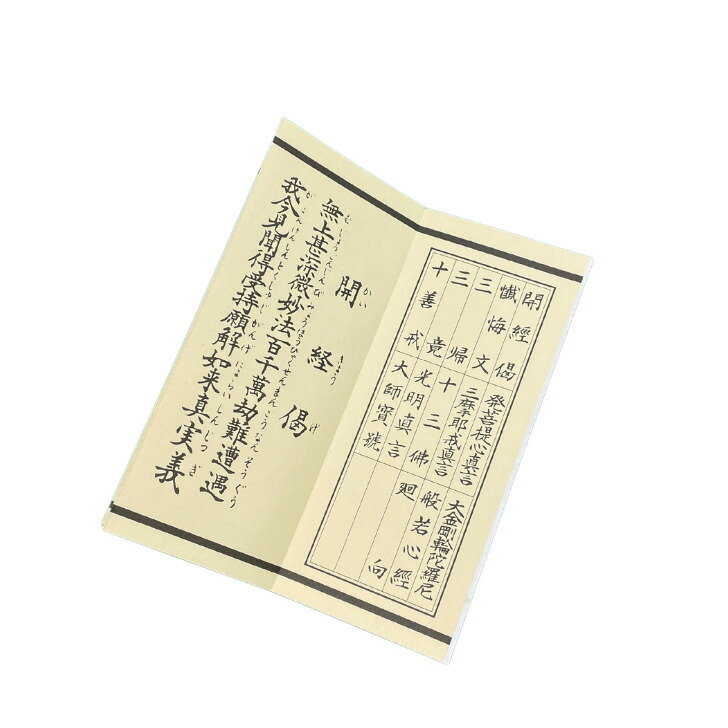 開經偈
懺悔文
三歸
三竟
十善戒
発菩提心真言
三摩耶戒真言
十三佛
光明真言
大師寶號
大金剛輪陀羅尼
般若心經
廻向
開経偈
かいきょうげ
無上甚深微妙法百千萬劫難遭遇
我今見聞得受持願解如来真実義